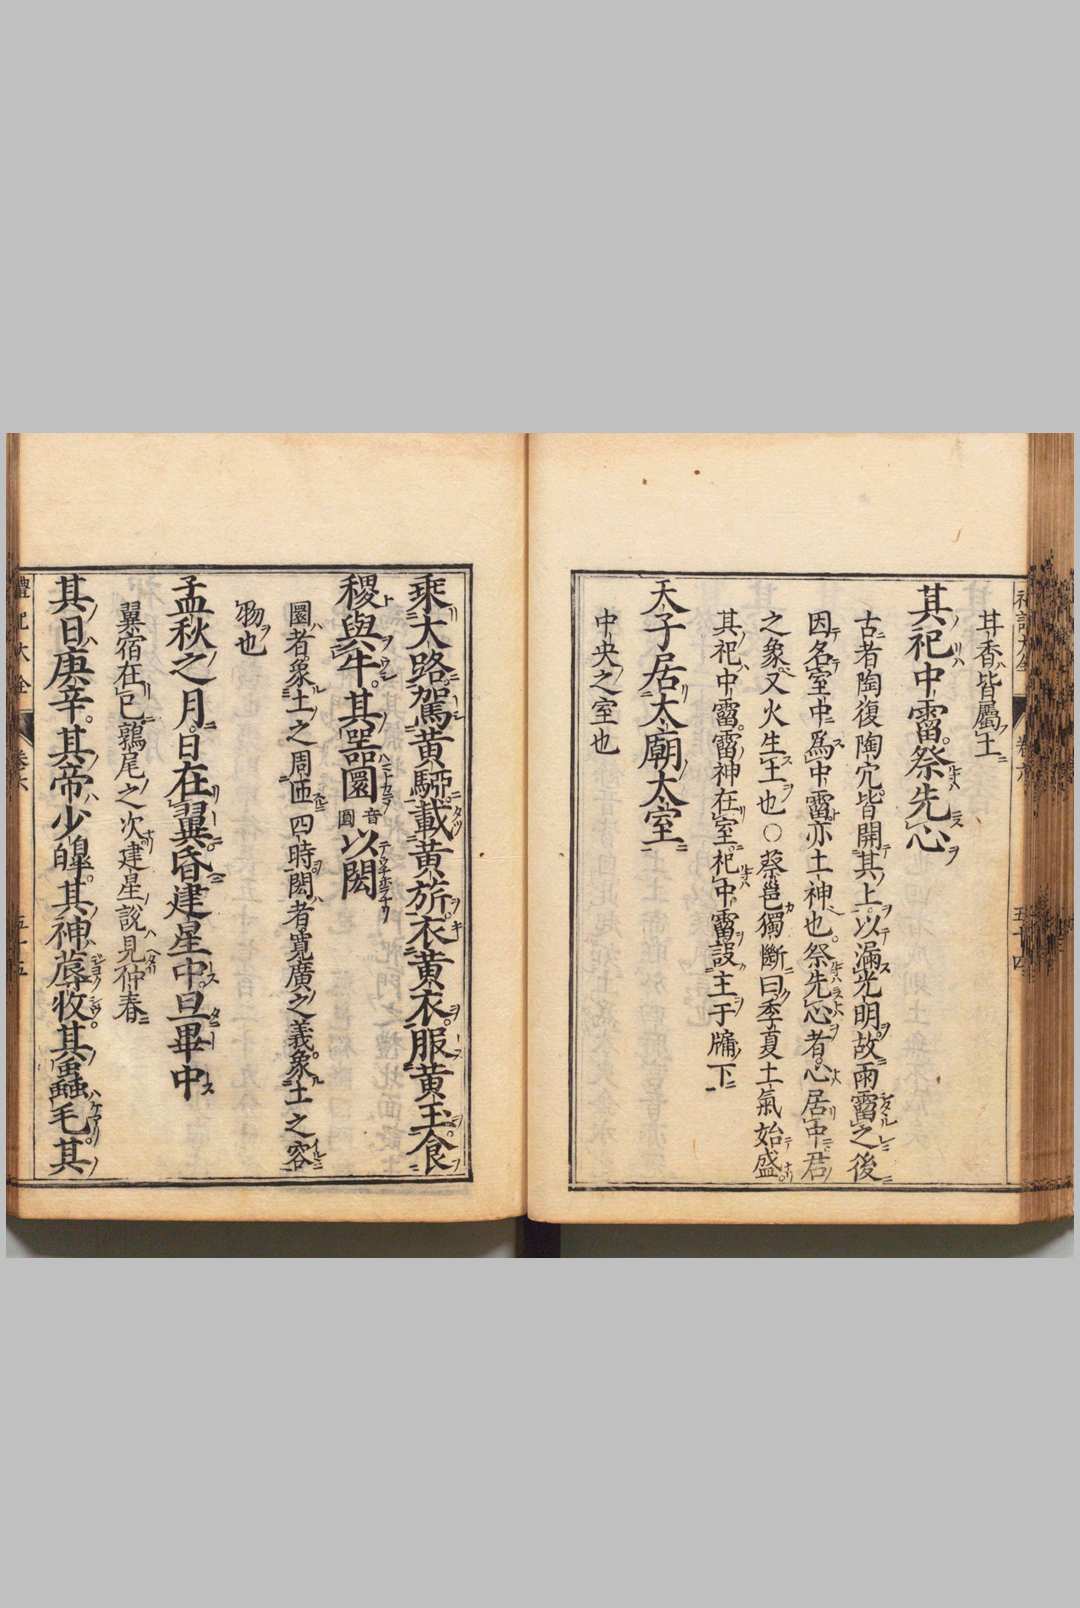 其香皆屬土
其祀中霤祭先心
古者陶復陶穴皆開其上以漏光明故雨霤之後
因名室中爲中霤亦土神也祭先心者心居中君
之象又火生土也○蔡邕獨斷曰季夏土氣始盛
其祀中霤霤神在室祀中霤設主于牖下
天子居大廟大室
中央之室也
禮記大全 卷六 五十四
乘大路駕黃騮載黃旂衣黃衣服黃玉食
稷與牛其器圜音圓以閎
圜者象土之周匝四時閎者寬廣之義象土之容
物也
孟秋之月日在翼昏建星中旦畢中
翼宿在巳鶉尾之次建星說見仲春
其日庚辛其帝少皥其神蓐收其蟲毛其
禮記大全 卷六 五十五